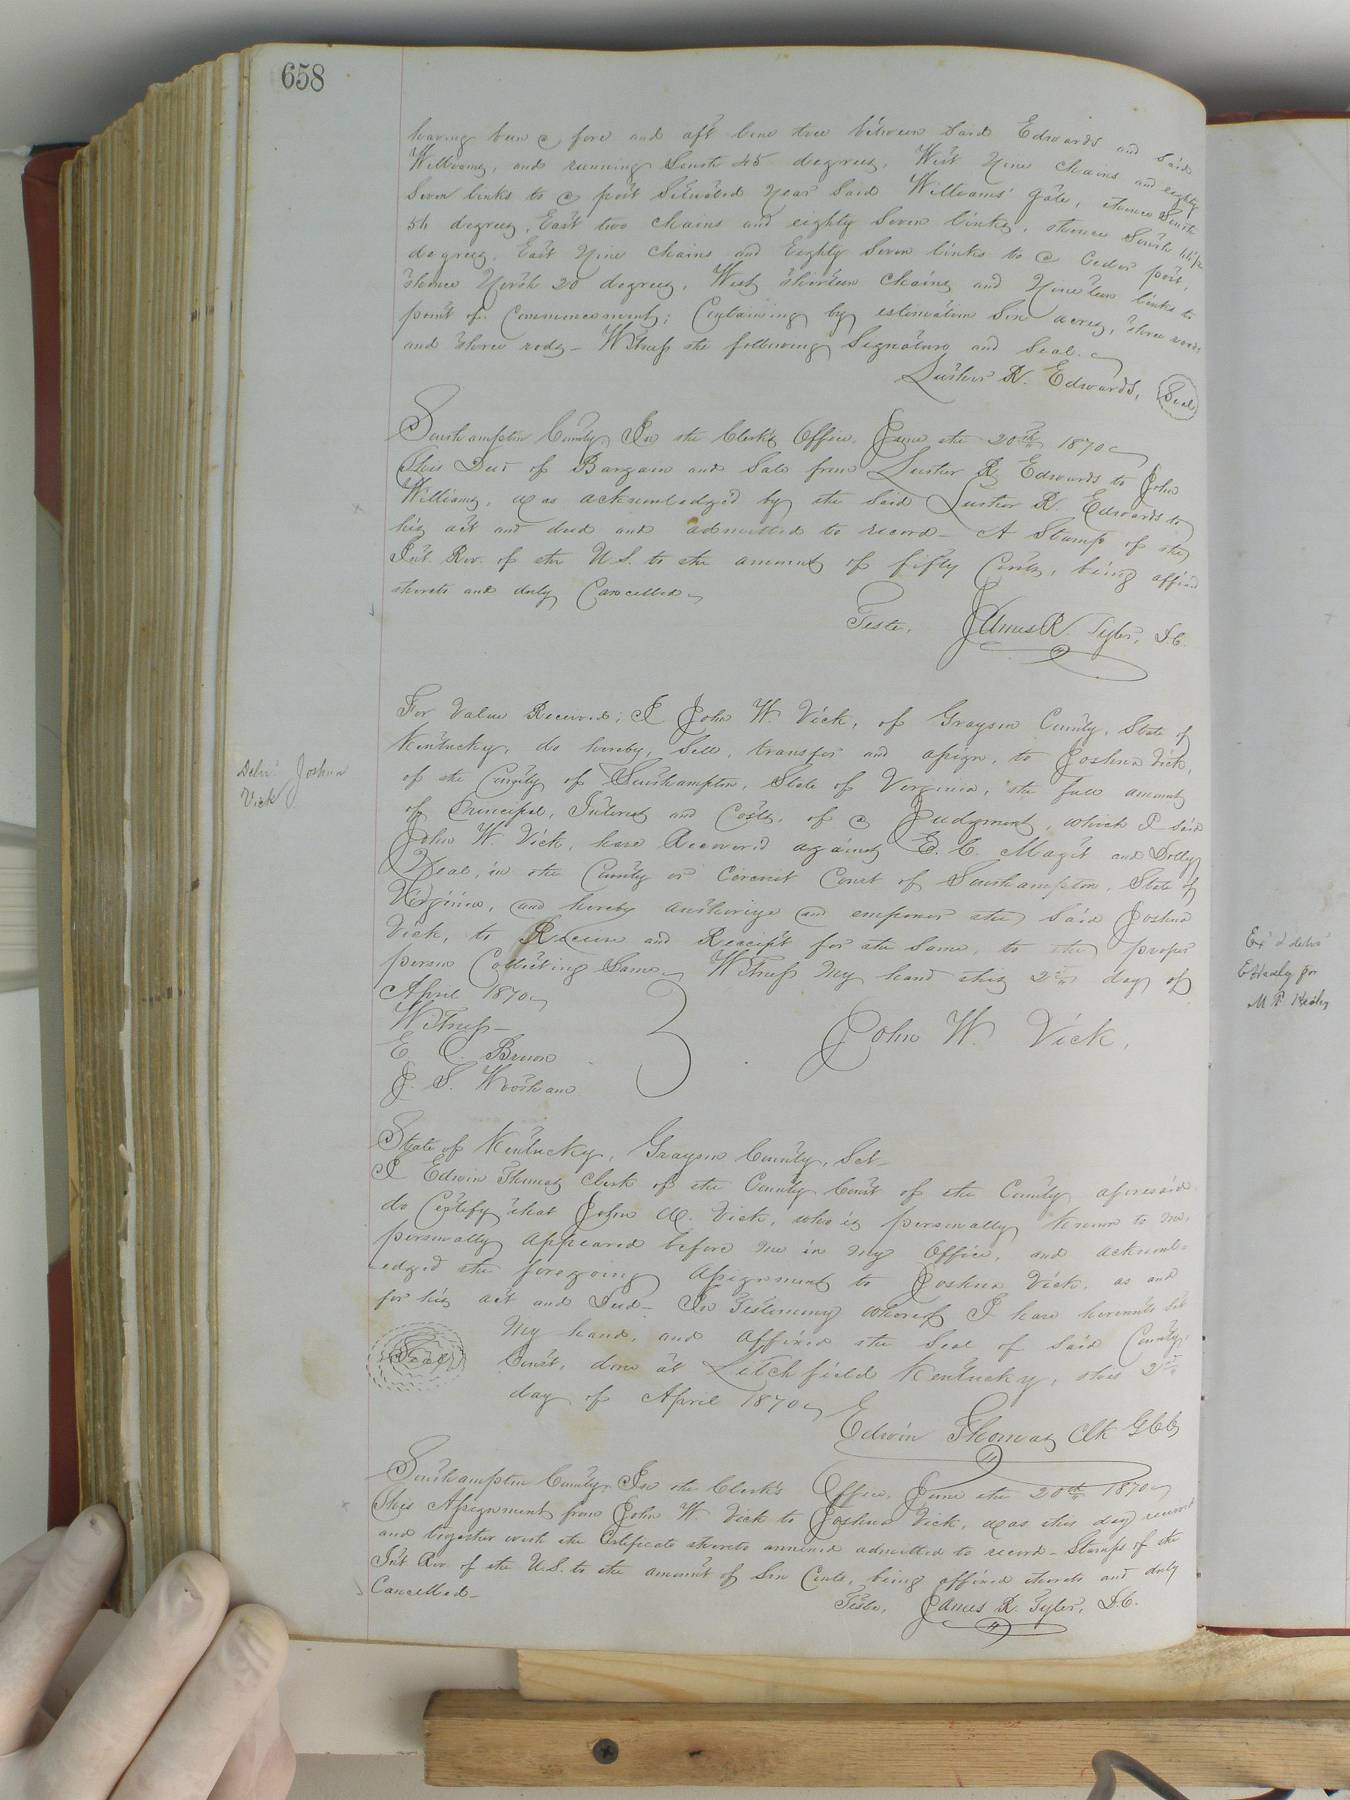 658
having been a fore and aft line tree between said Edwards and said
Williams, and running South 45 degrees, West Nine chains and eighty
Seven links to a post Situated near Said Williams' gate, thence South
54 degrees, East two chains and eighty Seven links, thence South
degrees, East Nine chains and Eighty Seven links to a Ceder post,
thence North 20 degrees, West thirteen chains and Nineteen links to
point of Commencement; Containing by estimation Six acres, three roods
and three rods— Witness the following Signature and Seal.
Luther R. Edwards, Seal
Southampton County, In the Clerk's Office, June the 20th 1870
This Deed of Bargain and Sale from Luther R. Edwards to John
Williams, was acknowledged by the Said Luther R. Edwards to
his act and deed and admitted to record— A Stamp of the
Int. Rev. of the U.S. to the amount of fifty Cents, being affixed
thereto and duly Cancelled
Teste, James R. Tyler, D.C.
Delv'd Joshua
Vick
For Value Received; I John W. Vick, of Grayson County, State of
Kentucky, do hereby, Sell, transfer and assign, to Joshua Vick,
of the County of Southampton, State of Virginia, the full amount
of Principal, Interest and Costs, of a Judgment, which I said
John W. Vick, have Recovered against E. C. Magit and Dolly
Neal, in the County or Corcuit Court of Southampton, State of
Virginia, and hereby authorize and empower the said Joshua
Vick, to Receive and Receipt for the Same, to the proper
person Collecting Same— Witness My hand this 2nd day of
April 1870
Witness—
E. C. Brunn
J. S. Wortham
John W. Vick.
State of Kentucky, Grayson County, Sct—
I Edwin Thomas Clerk of the County Court of the County aforesaid
do Certify that John W. Vick, who is personally known to me,
personally appeared before me in my Office, and acknowl-
edged the foregoing Assignment to Joshua Vick, as and
for his act and Deed— In Testimony whereof I have hereunto set
My hand, and affixed the Seal of said County
Seal
Court, done at Litchfield Kentucky, this 2nd
day of April 1870
Edwin Thomas Clk G.C.C.
Southampton County, In the Clerk's Office, June the 20th 1870
This Assignment from John W. Vick to Joshua Vick, was this day received
and together with the Certificate thereto annexed admitted to record— Stamps of the
Int. Rev. of the U.S. to the amount of Six Cents, being affixed thereto and duly
Cancelled—
Teste, James R. Tyler, D.C.